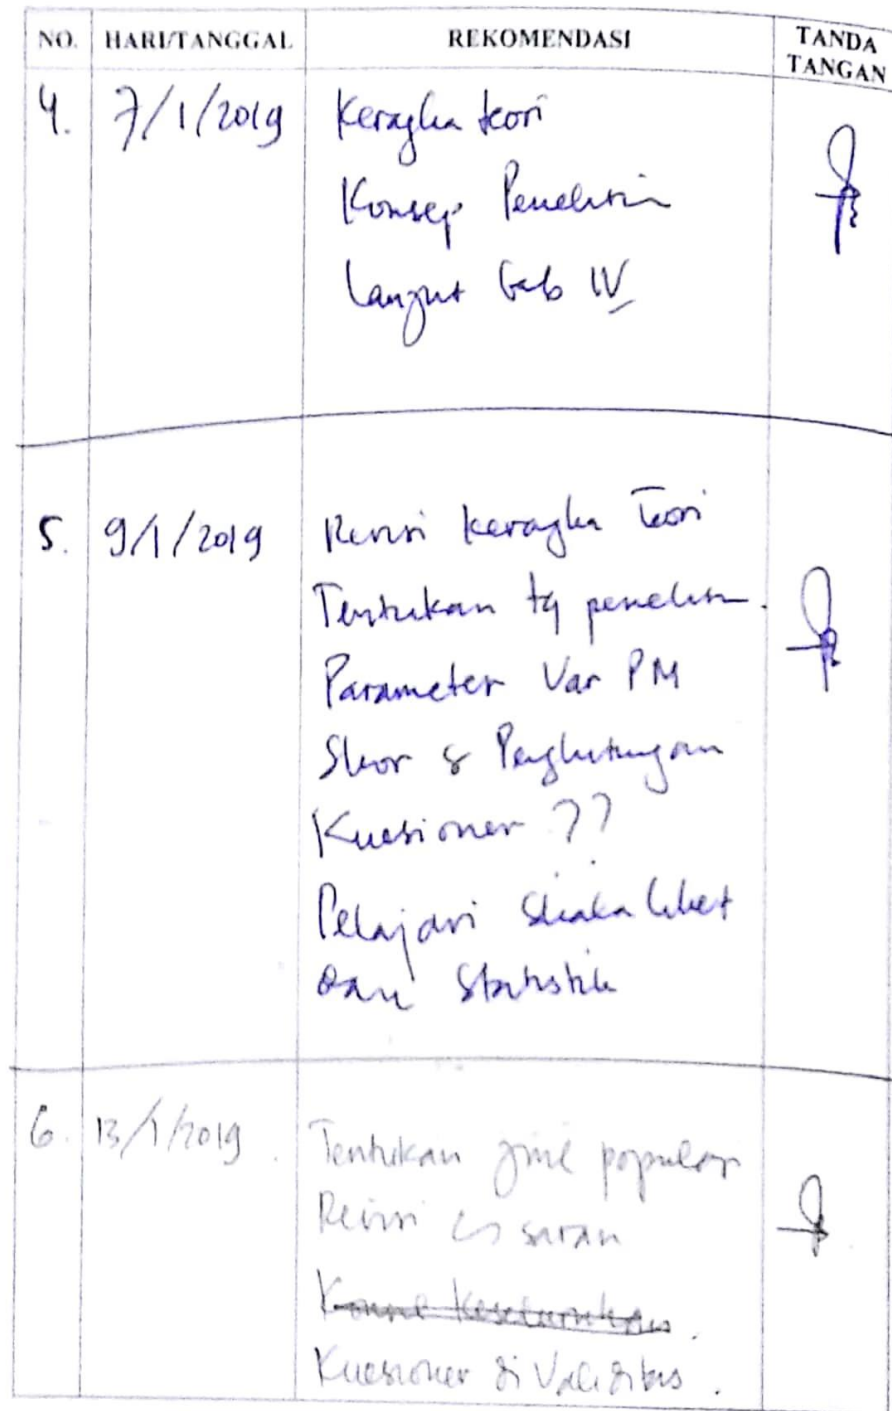 NO. HARI/TANGGAL REKOMENDASI TANDA TANGAN
4. 7/1/2019 Keragka teori
Konsep Penelitin
Lanjut bab IV
5. 9/1/2019 Revisi keragka Teori
Tentukan tq penelitn.
Parameter Var PM
Skor & Penghitungan
Kuesioner ??
Pelajari Skala Likert
dan Statistik
6. 13/1/2019. Tentukan jml populasi
Revisi saran
Kuesioner di Validitas.